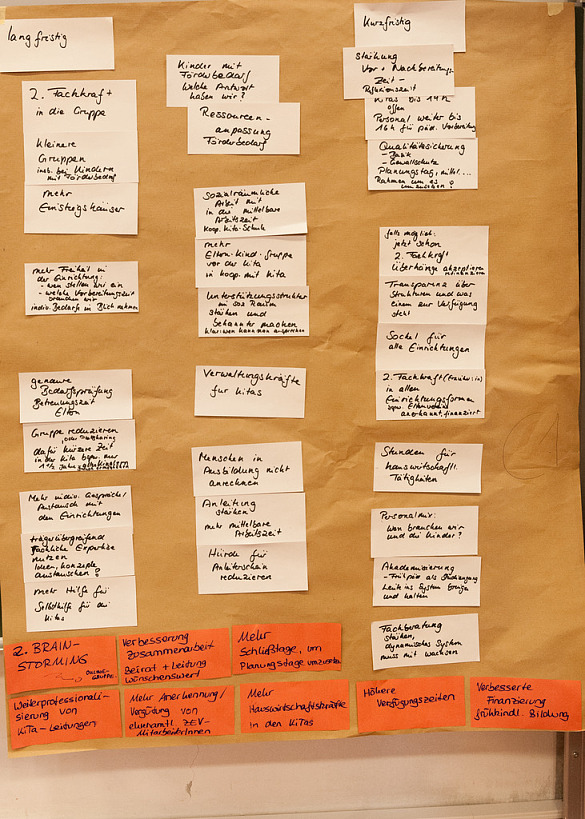 langfristig
2. Fachkraft
in die Gruppe
kleinere
Gruppen
insb. bei Kindern
mit Förderbedarf
mehr
Einstiegshäuser
mehr Freiheit in
der Einrichtung:
- wen stellen wir ein
- welche Vorbereitungszeit
brauchen wir
indiv. Bedarfe in Blick nehmen
genauere
Bedarfsprüfung
Betreuungszeit
Eltern
Gruppe reduzieren
oder Platzsharing
dafür kürzere Zeit
in der Kita bzw. nur
1 1/2 Jahre
Mehr indiv. Gespräche/
Austausch mit
den Einrichtungen
trägerübergreifend
fachliche Expertise
nutzen
Ideen, Konzepte
austauschen
mehr Hilfe für
Selbsthilfe für die
Kitas
Kinder mit
Förderbedarf
Welche Antwort
haben wir?
Ressourcen-
anpassung
Förderbedarf
Sozialräumliche
Arbeit mit
in die mittelbare
Arbeitszeit
Koop. Kita-Schule
mehr
Eltern-Kind-Gruppe
vor der Kita
in Koop. mit Kita
Unterstützungsstruktur
im Soz Raum
stärken und
bekannter machen
Verwaltungskräfte
für Kitas
Menschen in
Ausbildung nicht
anrechnen
Anleitung
stärken
mehr mittelbare
Arbeitszeit
Hürde für
Anleiterschein
reduzieren
Kurzfristig
Stärkung
Vor + Nachbereitungs-
Zeit -
Reflexionszeit
Kitas bis 14 h
offen
Personal weiter bis
16h für päd. Vorbereitung
Qualitätssicherung
- Gewaltschutz
Planungstag, mittel....
Rahmen um es
umzusetzen!
falls möglich:
jetzt schon
2. Fachkraft
Überhänge akzeptieren
Transparenz über
Strukturen und was
einem zur Verfügung
steht
Sockel für
alle Einrichtungen
2. Fachkraft (Erzieher:in)
in allen
Einrichtungsformen
bzw. Elternverein
anerkannt, finanziert
Stunden für
hauswirtschaftl.
Tätigkeiten
Personalmix:
Wen brauchen wir
und die Kinder?
Akademisierung
Leute ins System bringen
und halten
Fachberatung
stärken,
dynamisches System
muss mit wachsen
2. BRAIN-
STORMING
ONLINE-
GRUPPE
Verbesserung
Zusammenarbeit
Beirat + Leitung
wünschenswert
Mehr
Schließtage, um
Planungstage umzusetzen
Weiterprofessionali-
sierung von
KiTa-Leitungen
Mehr Anerkennung/
Vergütung von
ehrenamtl. ZEV-
MitarbeiterInnen
Mehr
Hauswirtschaftskräfte
in den KiTas
Höhere
Verfügungszeiten
Verbesserte
Finanzierung
frühkindl. Bildung